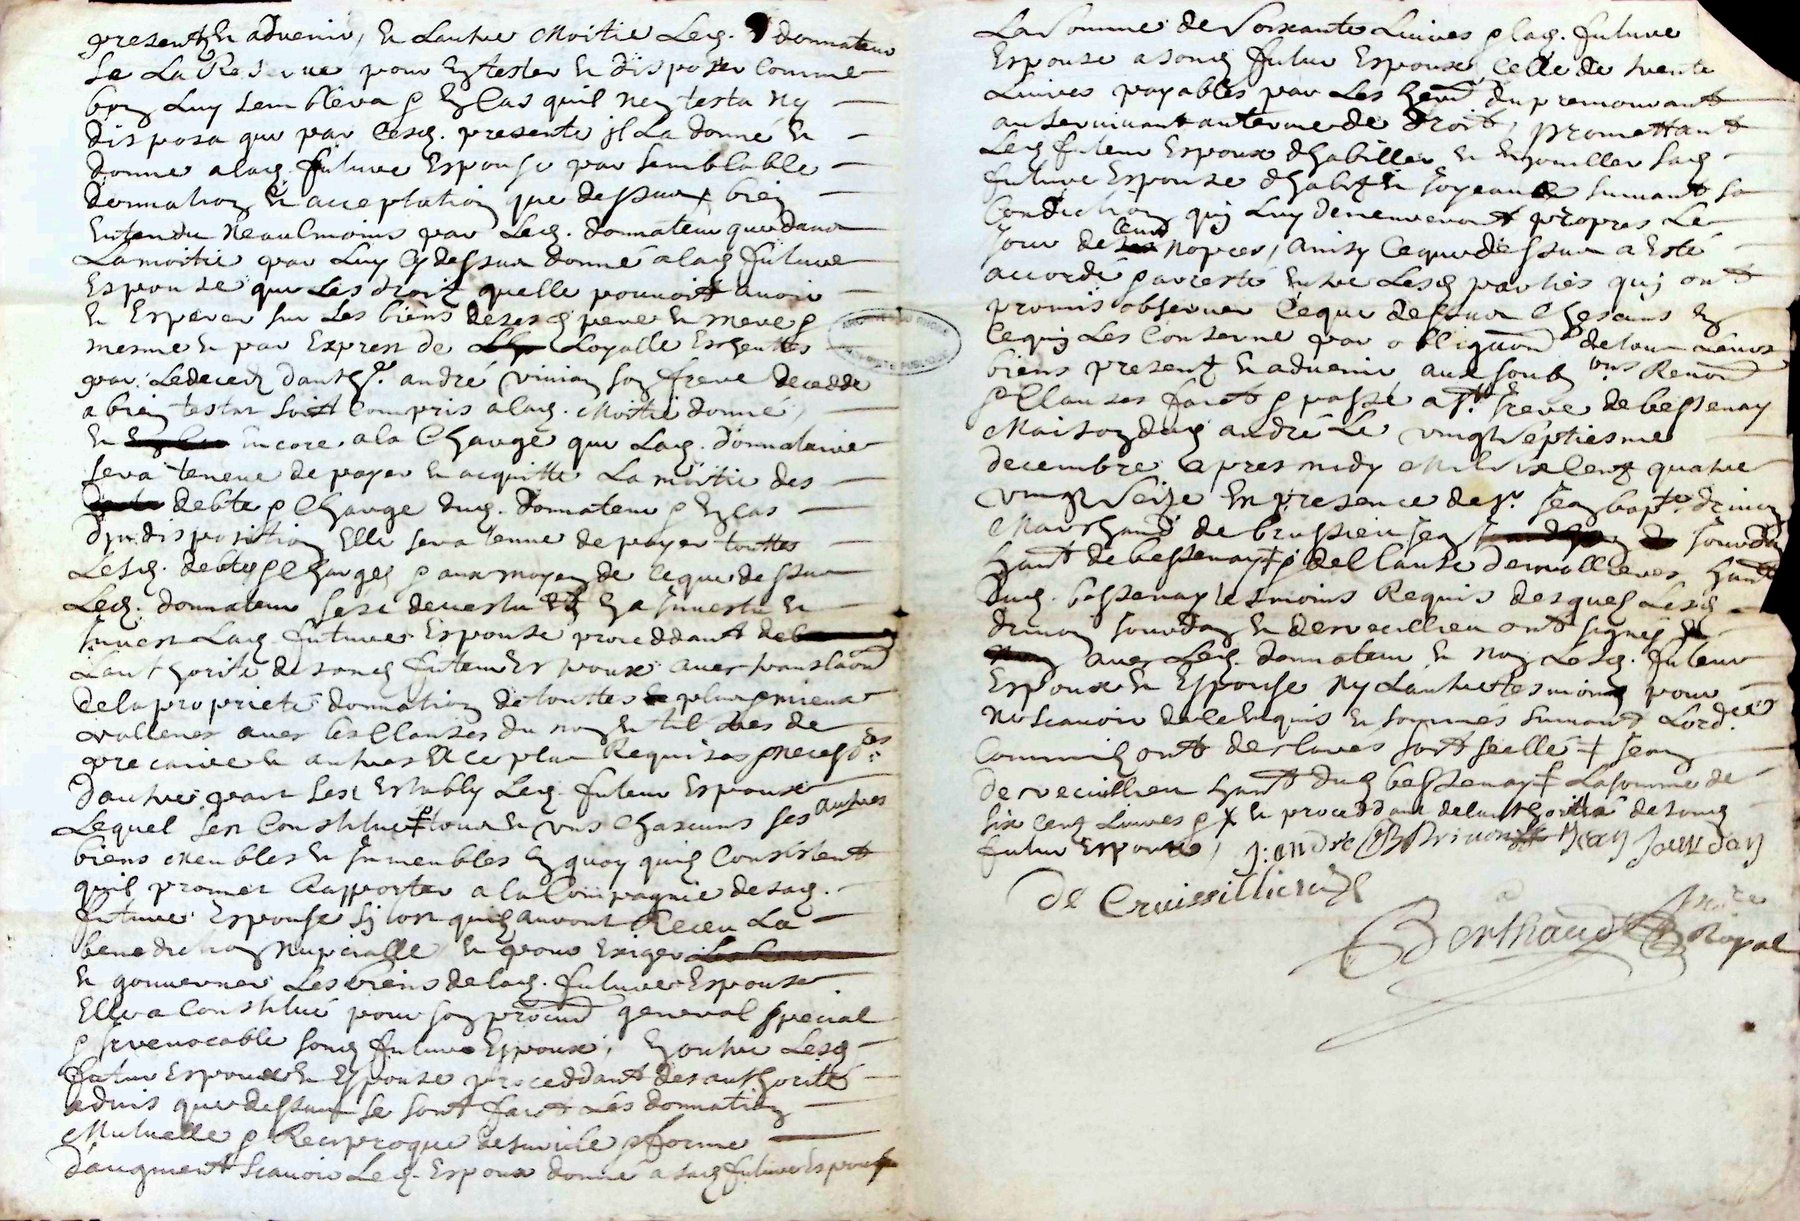 presentz & advenir, & Lautre Moitié Led. donnateur
se La Reserve pour en tester & disposer comme
bon Luy semblera & en cas quil nen testa ny
disposa que par cesd. presente il La donné &
donne a lad. future Espouse par semblable
donnation & acceptation que dessus bien
Entendu neaulmoins par Led. donnateur que dans
La moitié par Luy cy dessus donné a lad. future
Espouse que Les droitz quelle pouvoit avoir
& Esperer sur Les biens de sesd. pere & mere &
mesme & par Expres de Loyalle Escheutte
par Le deced dud. Sr. andré vivian son frere decedde
abintestat soit compris a lad. Moitié donné,
& Encore a la Charge que Lad. donnataire
sera tenue de payer & acquitte La moitié des
debte & Charge dud. donnateur & en cas
dindisposition Elle sera tenue de payer touttes
Lesd. debte & Charges & aux moyen de ce que dessus
Led. donnateur sest devestu & en a Investu &
Invest Lad. future Espouse proceddant de
Lauthorité de sond. futeur Espoux avec translaon
de la proprieté donnation de touttes plus & mieux
vallenes avec les Clauses du nom & til des de
precaire & autres Et ce plus Requises & necess.res
Dautre part sest Estably Led. futeur Espoux
Lequel sest Constitué tous & uns chascuns ses autres
biens meubles & Immeubles en quoy quilz Consistent
quil promet Rapporter a la Compagnie de sad.
future Espouse sy tost quilz auront Receu La
benediction nupcialle & pour Exiger
& gouverner Les biens de lad. future Espouse
Elle a Constitué pour son procur general special
& Irrevocable sond. future Espoux, En outre Lesd.
futur Espoux & Espouse proceddant des authorité
advis que dessus se sont fait Les donnation
Mutuelle & Reciproque de survie & forme
daugment scavoir Led. Espoux donne a sad. future Espouse
La somme de soixante Livres & lad. future
Espouse a sond. futur Espoux celle de trente
Livres payables par Les herit du premourant
au survivant au terme de droit, promettant
Led. futeur Espoux dhabiller & Enjouiller sad.
future Espouse dhabitz & Joyeaux suivant sa
Condiction quy Luy demeureront propres Le
jour de leurs nopces, Ainsy Ceque dessus a Esté
accordé & aresté Entre Lesd. parties quj ont
promis observer Ceque dessus Chascuns En
Cequj Les Conserne par obligaon de tous Leurs
biens presentz & advenir aux soub.ons Renon
& Clauses fait & passé a St. Jreve de bessenay
Maison dud. andré Le vingt septiesme
decembre apres midy Mil six Centz quatre
vingt seize En presence de Sr. Jean bapte. drivon
Marchand de brussieu Jean Jourdan
hant de bessenay & de Clause hant
dud. bessenay tesmoins Requis desquelz Lesd.
drivon Jourdan & ont signés
avec Led. donnateur & non Lesd. futeur
Espoux & Espouse ny Lautre tesmoing pour
ne scavoir de ce Enquis & sommés suivant Lord.ce
Commis ont declares soit seellé Jean
hant dud. bessenay La somme de
six Centz Livres & & proceddant de lauthorité de sond.
futur Espoux, J. andré JB Drivon Jean Jourdan
de Cruissillieux
Berthaud Nore Royal